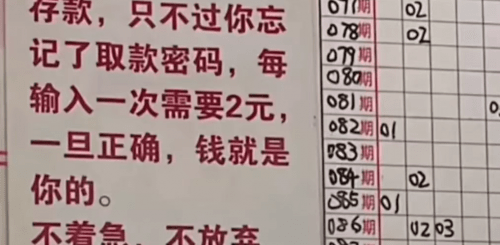 存款，只不过你忘
记了取款密码，每
输入一次需要2元，
一旦正确，钱就是
你的。
不着急，不放弃
071期 02
078期 02
079期
080期
081期
082期 01
083期
084期 02
085期 01
086期 02 03